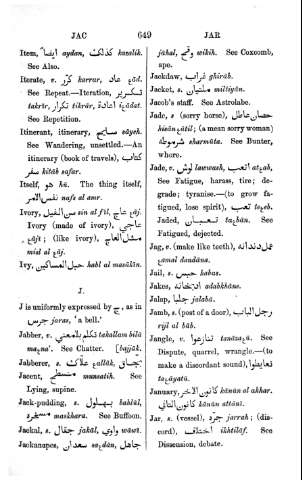 JAC 649 JAR
Item, ايضاً aydan, كذلك kazalik.
See Also.
Iterate, v. كرر karrar, عاد ɛád.
See Repeat.—Iteration, تكرير
takrír, تكرار tikrár, اعادة iɛádat.
See Repetition.
Itinerant, itinerary, سايح sáyeh.
See Wandering, unsettled.—An
itinerary (book of travels), كتاب
سفر kitáb safar.
Itself, هو hú. The thing itself,
نفس الامر nafs al amr.
Ivory, سن الفيل sin al fíl, عاج ɛáj.
Ivory (made of ivory), عاجي
ɛájí; (like ivory), مثل العاج
misl al ɛáj.
Ivy, حبل المساكين habl al masákín.
J.
J is uniformly expressed by ج, as in
جرس jaras, 'a bell.'
Jabber, v. تكلم بلا معني takallam bilá
maɛna'. See Chatter. [bajják.
Jabberer, s. علاك ɛallák, بجاق
Jacent, منسطح munsatih. See
Lying, supine.
Jack-pudding, s. بهلول bahlúl,
مسخره maskhara. See Buffoon.
Jackal, s. جقال jakál, واوي wáwí.
Jackanapes, سعدان saɛdán, جاهل
jáhal, وقح wikih. See Coxcomb,
ape.
Jackdaw, غراب ghiráb.
Jacket, s. ملتيان miltiyán.
Jacob's staff. See Astrolabe.
Jade, s (sorry horse), حصان عاطل
hisán ɛátil; (a mean sorry woman)
شرموطة sharmúta. See Bunter,
whore.
Jade, v. لوش lawwash, اتعب atɛab.
See Fatigue, harass, tire; de-
grade; tyranise.—(to grow fa-
tigued, lose spirit), تعب taɛeb.
Jaded, تعبان taɛbán. See
Fatigued, dejected.
Jag, v. (make teeth), عمل دندانه
ɛamal dandána.
Jail, s. حبس habas.
Jakes, ادبخانه adabkhána.
Jalap, جلبا jalabá.
Jamb, s. (post of a door), رجل الباب
rijl al báb.
Jangle, v. تنازعوا tanázaɛú. See
Dispute, quarrel, wrangle.—(to
make a discordant sound), تعايطوا
taɛáyatú.
January, كانون الاخر kánún al akhar.
كانون الثاني kánún attání.
Jar, s. (vessel), جره jarrah; (dis-
cord), اختلاف ikhtiláf. See
Dissension, debate.